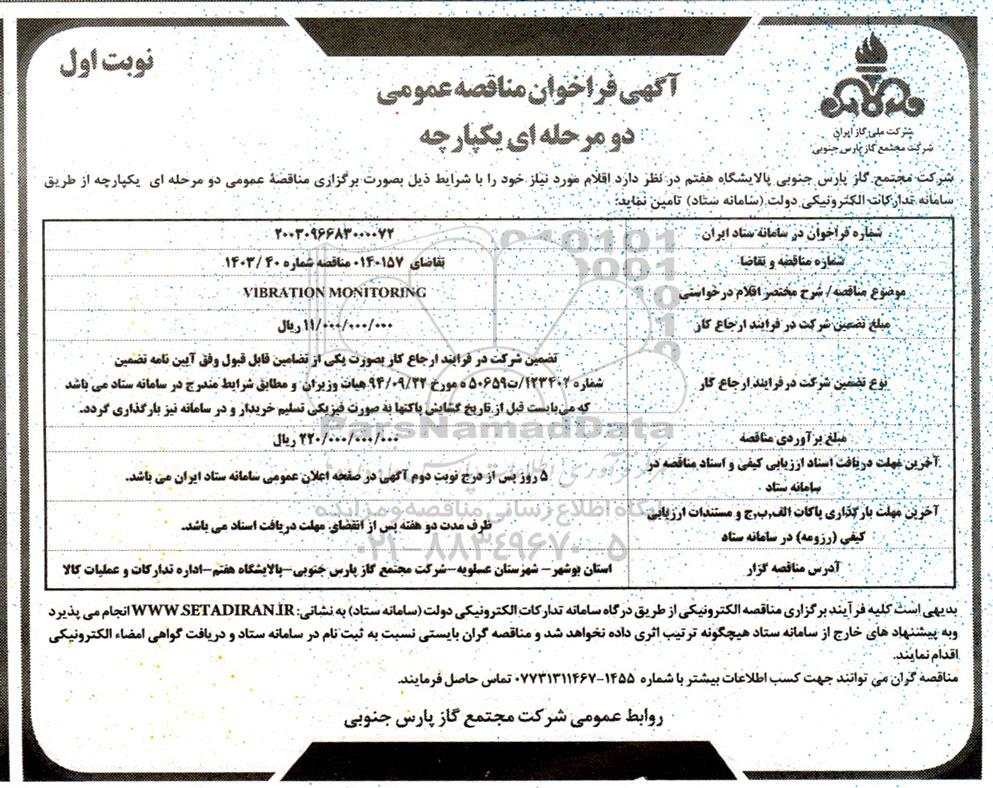 نوبت اول
شرکت ملی گاز ایران
شرکت مجتمع گاز پارس جنوبی
آگهی فراخوان مناقصه عمومی
دو مرحله ای یکپارچه
شرکت مجتمع گاز پارس جنوبی پالایشگاه هفتم در نظر دارد اقلام مورد نیاز خود را با شرایط ذیل بصورت برگزاری مناقصهٔ عمومی دو مرحله ای یکپارچه از طریق
سامانه تدارکات الکترونیکی دولت (سامانه ستاد) تامین نماید:
شماره فراخوان در سامانه ستاد ایران ۲۰۰۳۰۹۶۶۸۳۰۰۰۰۷۲
شماره مناقصه و تقاضا تقاضای ۰۱۴۰۱۵۷ مناقصه شماره ۴۰ /۱۴۰۳
موضوع مناقصه/ شرح مختصر اقلام درخواستی VIBRATION MONITORING
مبلغ تضمین شرکت در فرایند ارجاع کار ۱۱/۰۰۰/۰۰۰/۰۰۰ ریال
نوع تضمین شرکت در فرایند ارجاع کار
تضمین شرکت در فرایند ارجاع کار بصورت یکی از تضامین قابل قبول وفق آیین نامه تضمین
شماره ۱۲۳۴۰۲/ت۵۰۶۵۹ ه مورخ ۹۴/۰۹/۲۲ هیات وزیران و مطابق شرایط مندرج در سامانه ستاد می باشد
که می‌بایست قبل از تاریخ گشایش پاکتها به صورت فیزیکی تسلیم خریدار و در سامانه نیز بارگذاری گردد.
مبلغ برآوردی مناقصه ۲۲۰/۰۰۰/۰۰۰/۰۰۰ ریال
آخرین مهلت دریافت اسناد ارزیابی کیفی و اسناد مناقصه در
سامانه ستاد
۵ روز پس از درج نوبت دوم آگهی در صفحه اعلان عمومی سامانه ستاد ایران می باشد.
آخرین مهلت بارگذاری پاکات الف،ب،ج و مستندات ارزیابی
کیفی (رزومه) در سامانه ستاد
ظرف مدت دو هفته پس از انقضای مهلت دریافت اسناد می باشد.
آدرس مناقصه گزار استان بوشهر– شهرستان عسلویه–شرکت مجتمع گاز پارس جنوبی–پالایشگاه هفتم–اداره تدارکات و عملیات کالا
بدیهی است کلیه فرآیند برگزاری مناقصه الکترونیکی از طریق درگاه سامانه تدارکات الکترونیکی دولت (سامانه ستاد) به نشانی: WWW.SETADIRAN.IR انجام می پذیرد
وبه پیشنهاد های خارج از سامانه ستاد هیچگونه ترتیب اثری داده نخواهد شد و مناقصه گران بایستی نسبت به ثبت نام در سامانه ستاد و دریافت گواهی امضاء الکترونیکی
اقدام نمایند.
مناقصه گران می توانند جهت کسب اطلاعات بیشتر با شماره ۱۴۵۵-۰۷۷۳۱۳۱۱۴۶۷ تماس حاصل فرمایند.
روابط عمومی شرکت مجتمع گاز پارس جنوبی
ParsNamadData
پایگاه اطلاع رسانی مناقصه و مزایده
۰۲۱-۸۸۳۴۹۶۷۰-۵